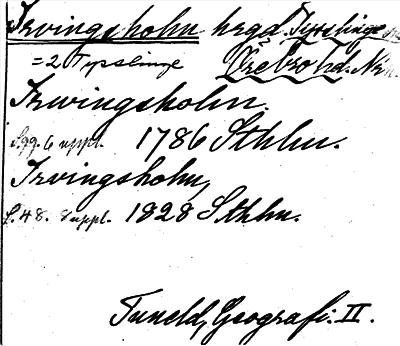 Irvingsholm hrgd. Tysslinge
= 2 Tysslinge Örebro hd. När.
Irwingsholm.
S. 99. 6 uppl. 1786 Sthlm.
Irvingsholm,
S. 48. 8 uppl. 1828 Sthlm.
Tuneld, Geografi. II.